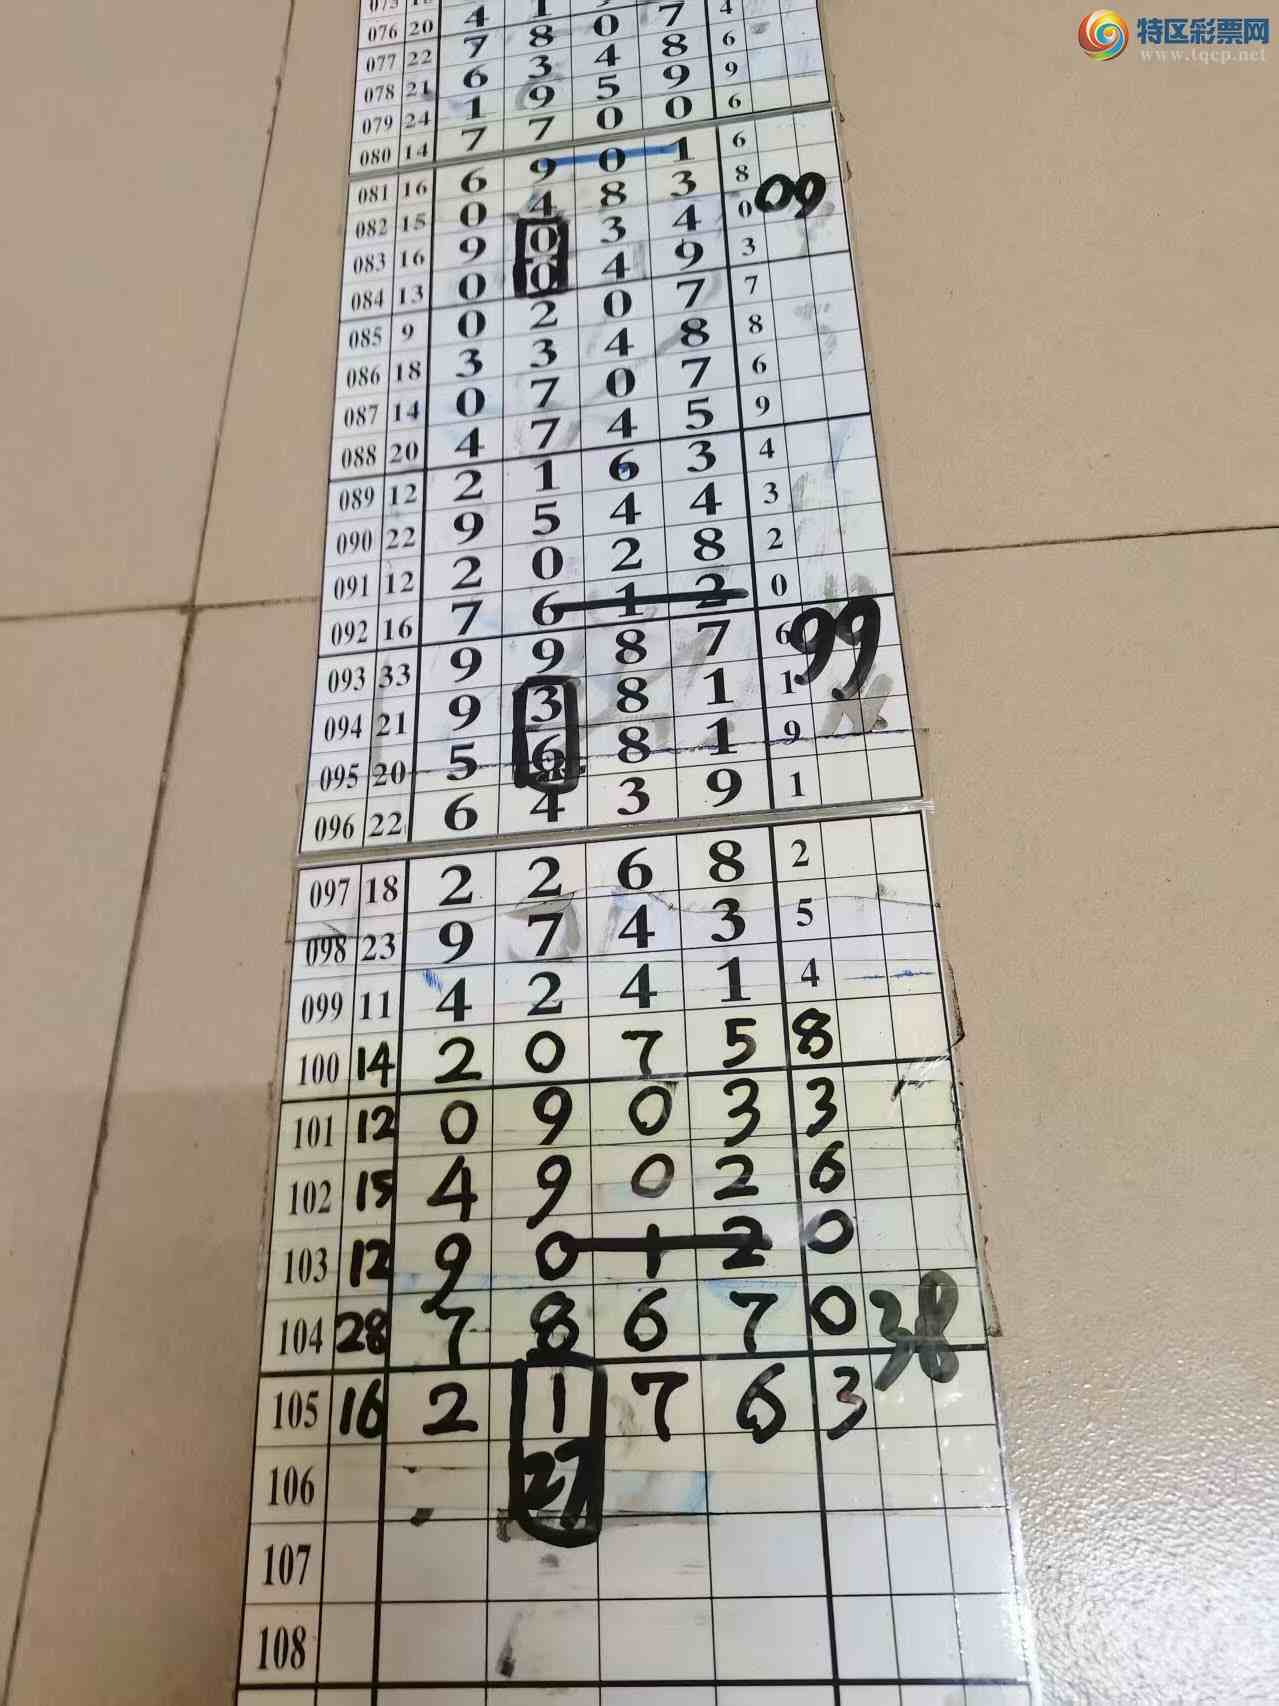 特区彩票网
www.tqcp.net
076 20 4 1
077 22 7 8 0 7 4
078 21 6 3 4 8 6
079 24 1 9 5 9 9
080 14 7 7 0 0 6
081 16 6 9 0 1 6
082 15 0 4 8 3 8
083 16 9 0 3 4 0 09
084 13 0 0 4 9 3
085 9 0 2 0 7 7
086 18 3 3 4 8 8
087 14 0 7 0 7 6
088 20 4 7 4 5 9
089 12 2 1 6 3 4
090 22 9 5 4 4 3
091 12 2 0 2 8 2
092 16 7 6 1 2 0
093 33 9 9 8 7 6 99
094 21 9 3 8 1 1
095 20 5 6 8 1 9
096 22 6 4 3 9 1
097 18 2 2 6 8 2
098 23 9 7 4 3 5
099 11 4 2 4 1 4
100 14 2 0 7 5 8
101 12 0 9 0 3 3
102 15 4 9 0 2 6
103 12 9 0 1 2 0
104 28 7 8 6 7 0 38
105 16 2 1 7 6 3
106 27
107
108